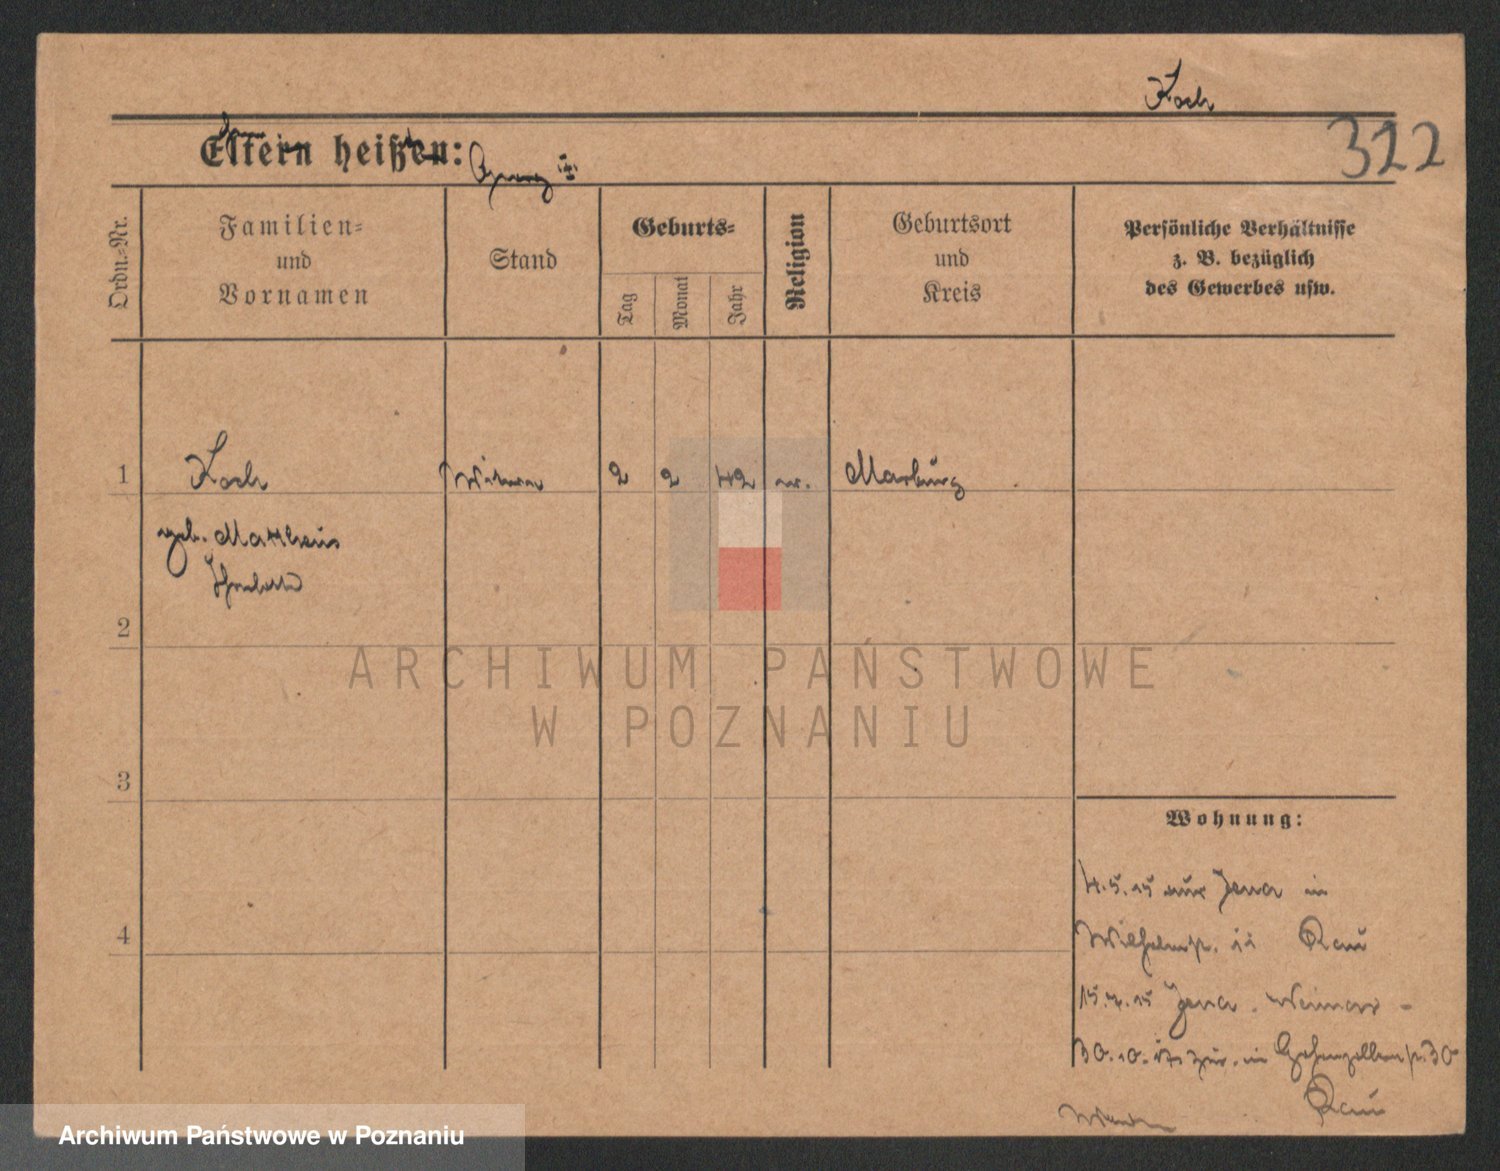 Koch
322
Eltern heißen:
Ordn.-Nr.
Familien-
und
Vornamen
Stand
Geburts-
Tag
Monat
Jahr
Religion
Geburtsort
und
Kreis
Persönliche Verhältnisse
z. B. bezüglich
des Gewerbes usw.
1
Koch
Witwe
2 2 42
Marburg
geb.
2
3
4
Wohnung:
4.5.15 aus Jena in
Rau
Jena. Weimar -
30.10. in 30
Rau
ARCHIWUM PAŃSTWOWE
W POZNANIU
Archiwum Państwowe w Poznaniu